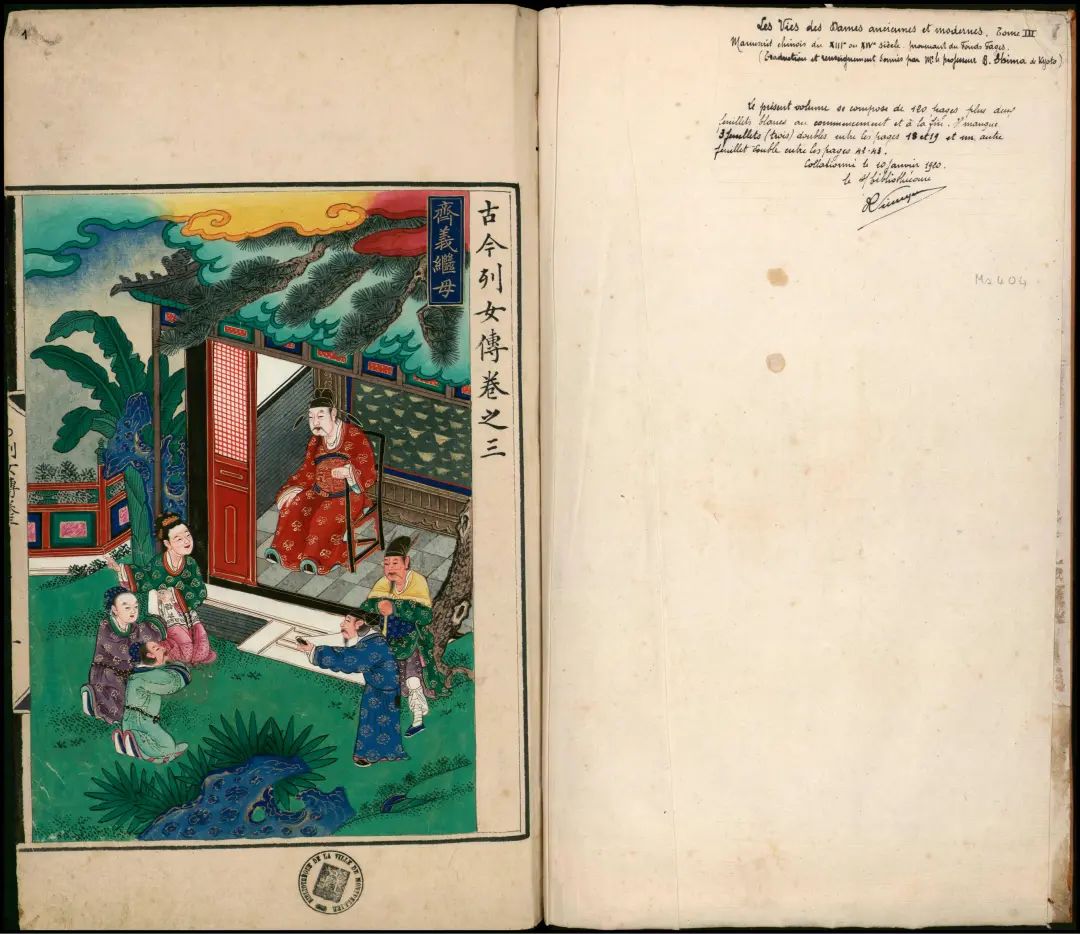 1
古今列女傳卷之三
齊義繼母
BIBLIOTHEQUE DE LA VILLE DE MONTPELLIER
Les Vies des Dames anciennes et modernes. Tome III
Manuscrit chinois du XIIIe ou XIVe siècle provenant du Fonds Fages.
(Traduction et renseignement donnés par Mr le professeur de Kyoto)
Le présent volume se compose de 120 pages plus deux
feuillets blancs au commencement et à la fin. Il manque
3 feuillets (trois) doubles entre les pages 18 et 19 et un autre
feuillet double entre les pages 42-43.
Collationné le 10 janvier 1920.
le bibliothécaire
Ms 404